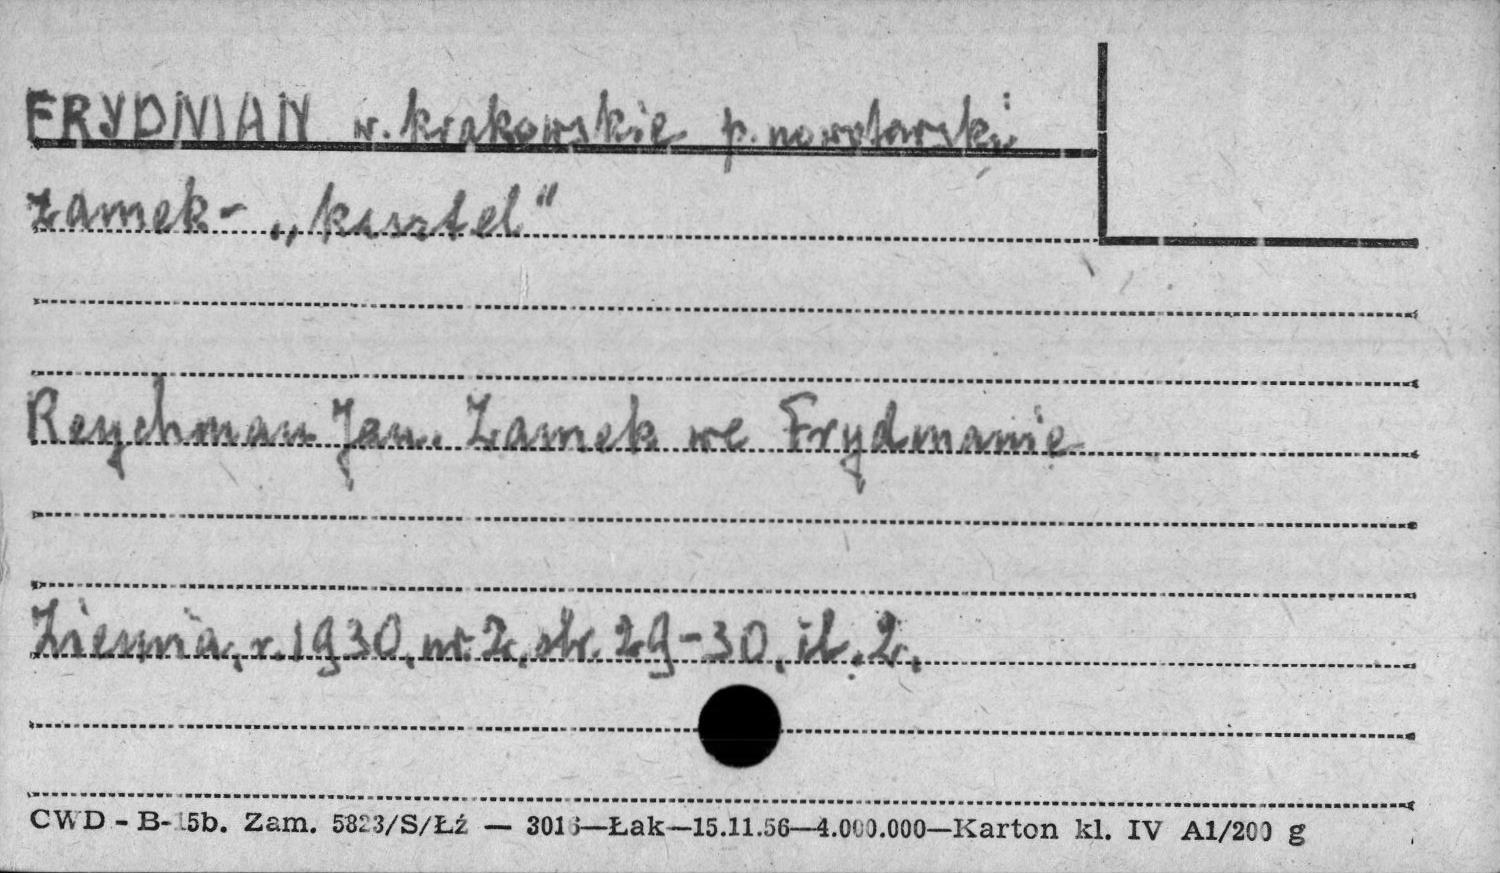 FRYDMAN w. krakowskie p. nowotarski
Zamek - „kasztel"
Reychman Jan. Zamek we Frydmanie
Ziemia, r. 1930, nr. 2, str. 29-30, il. 2.
CWD - B-15b. Zam. 5823/S/Łź — 3016—Łak—15.11.56—4.000.000—Karton kl. IV A1/200 g